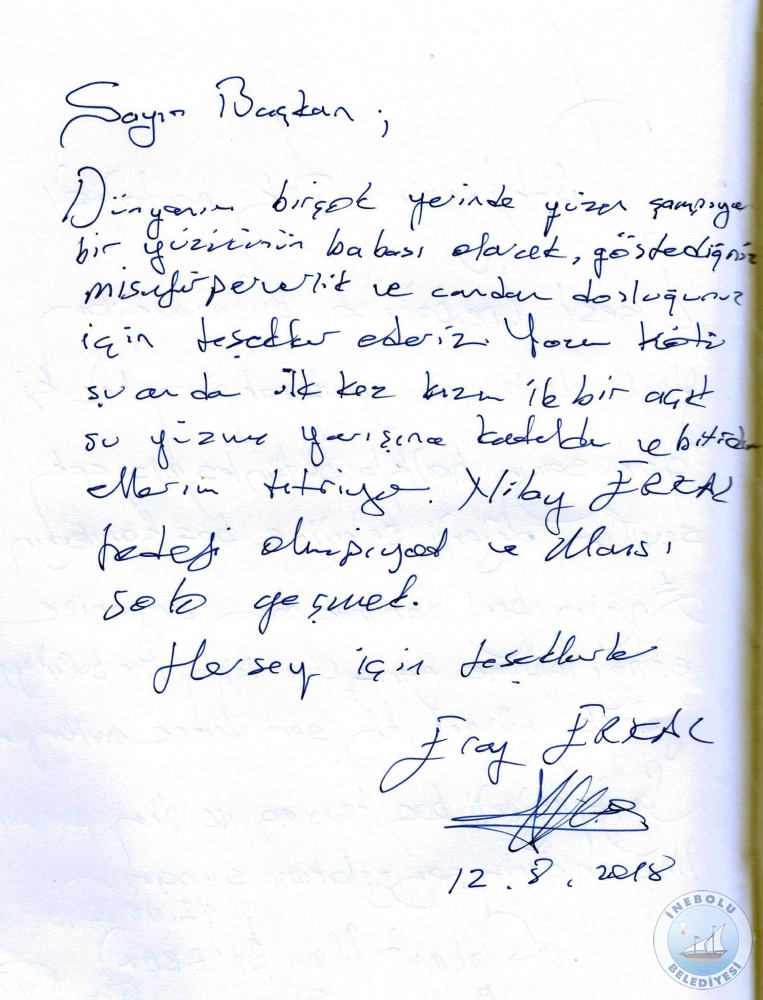 Sayın Başkan;
Dünyanın birçok yerinde yüzen şampiyon
bir yüzücünün babası olarak, gösterdiğiniz
misafirperverlik ve candan dostluğunuz
için teşekkür ederiz.
şu anda ilk kez kızım ile bir açık
su yüzme yarışına katıldı ve bitirdi
ellerim titriyor. ERKAL
hedefi olimpiyat ve Manşı
solo geçmek.
Herşey için teşekkürler
Eray ERKAL
12.8.2018
İNEBOLU
BELEDİYESİ